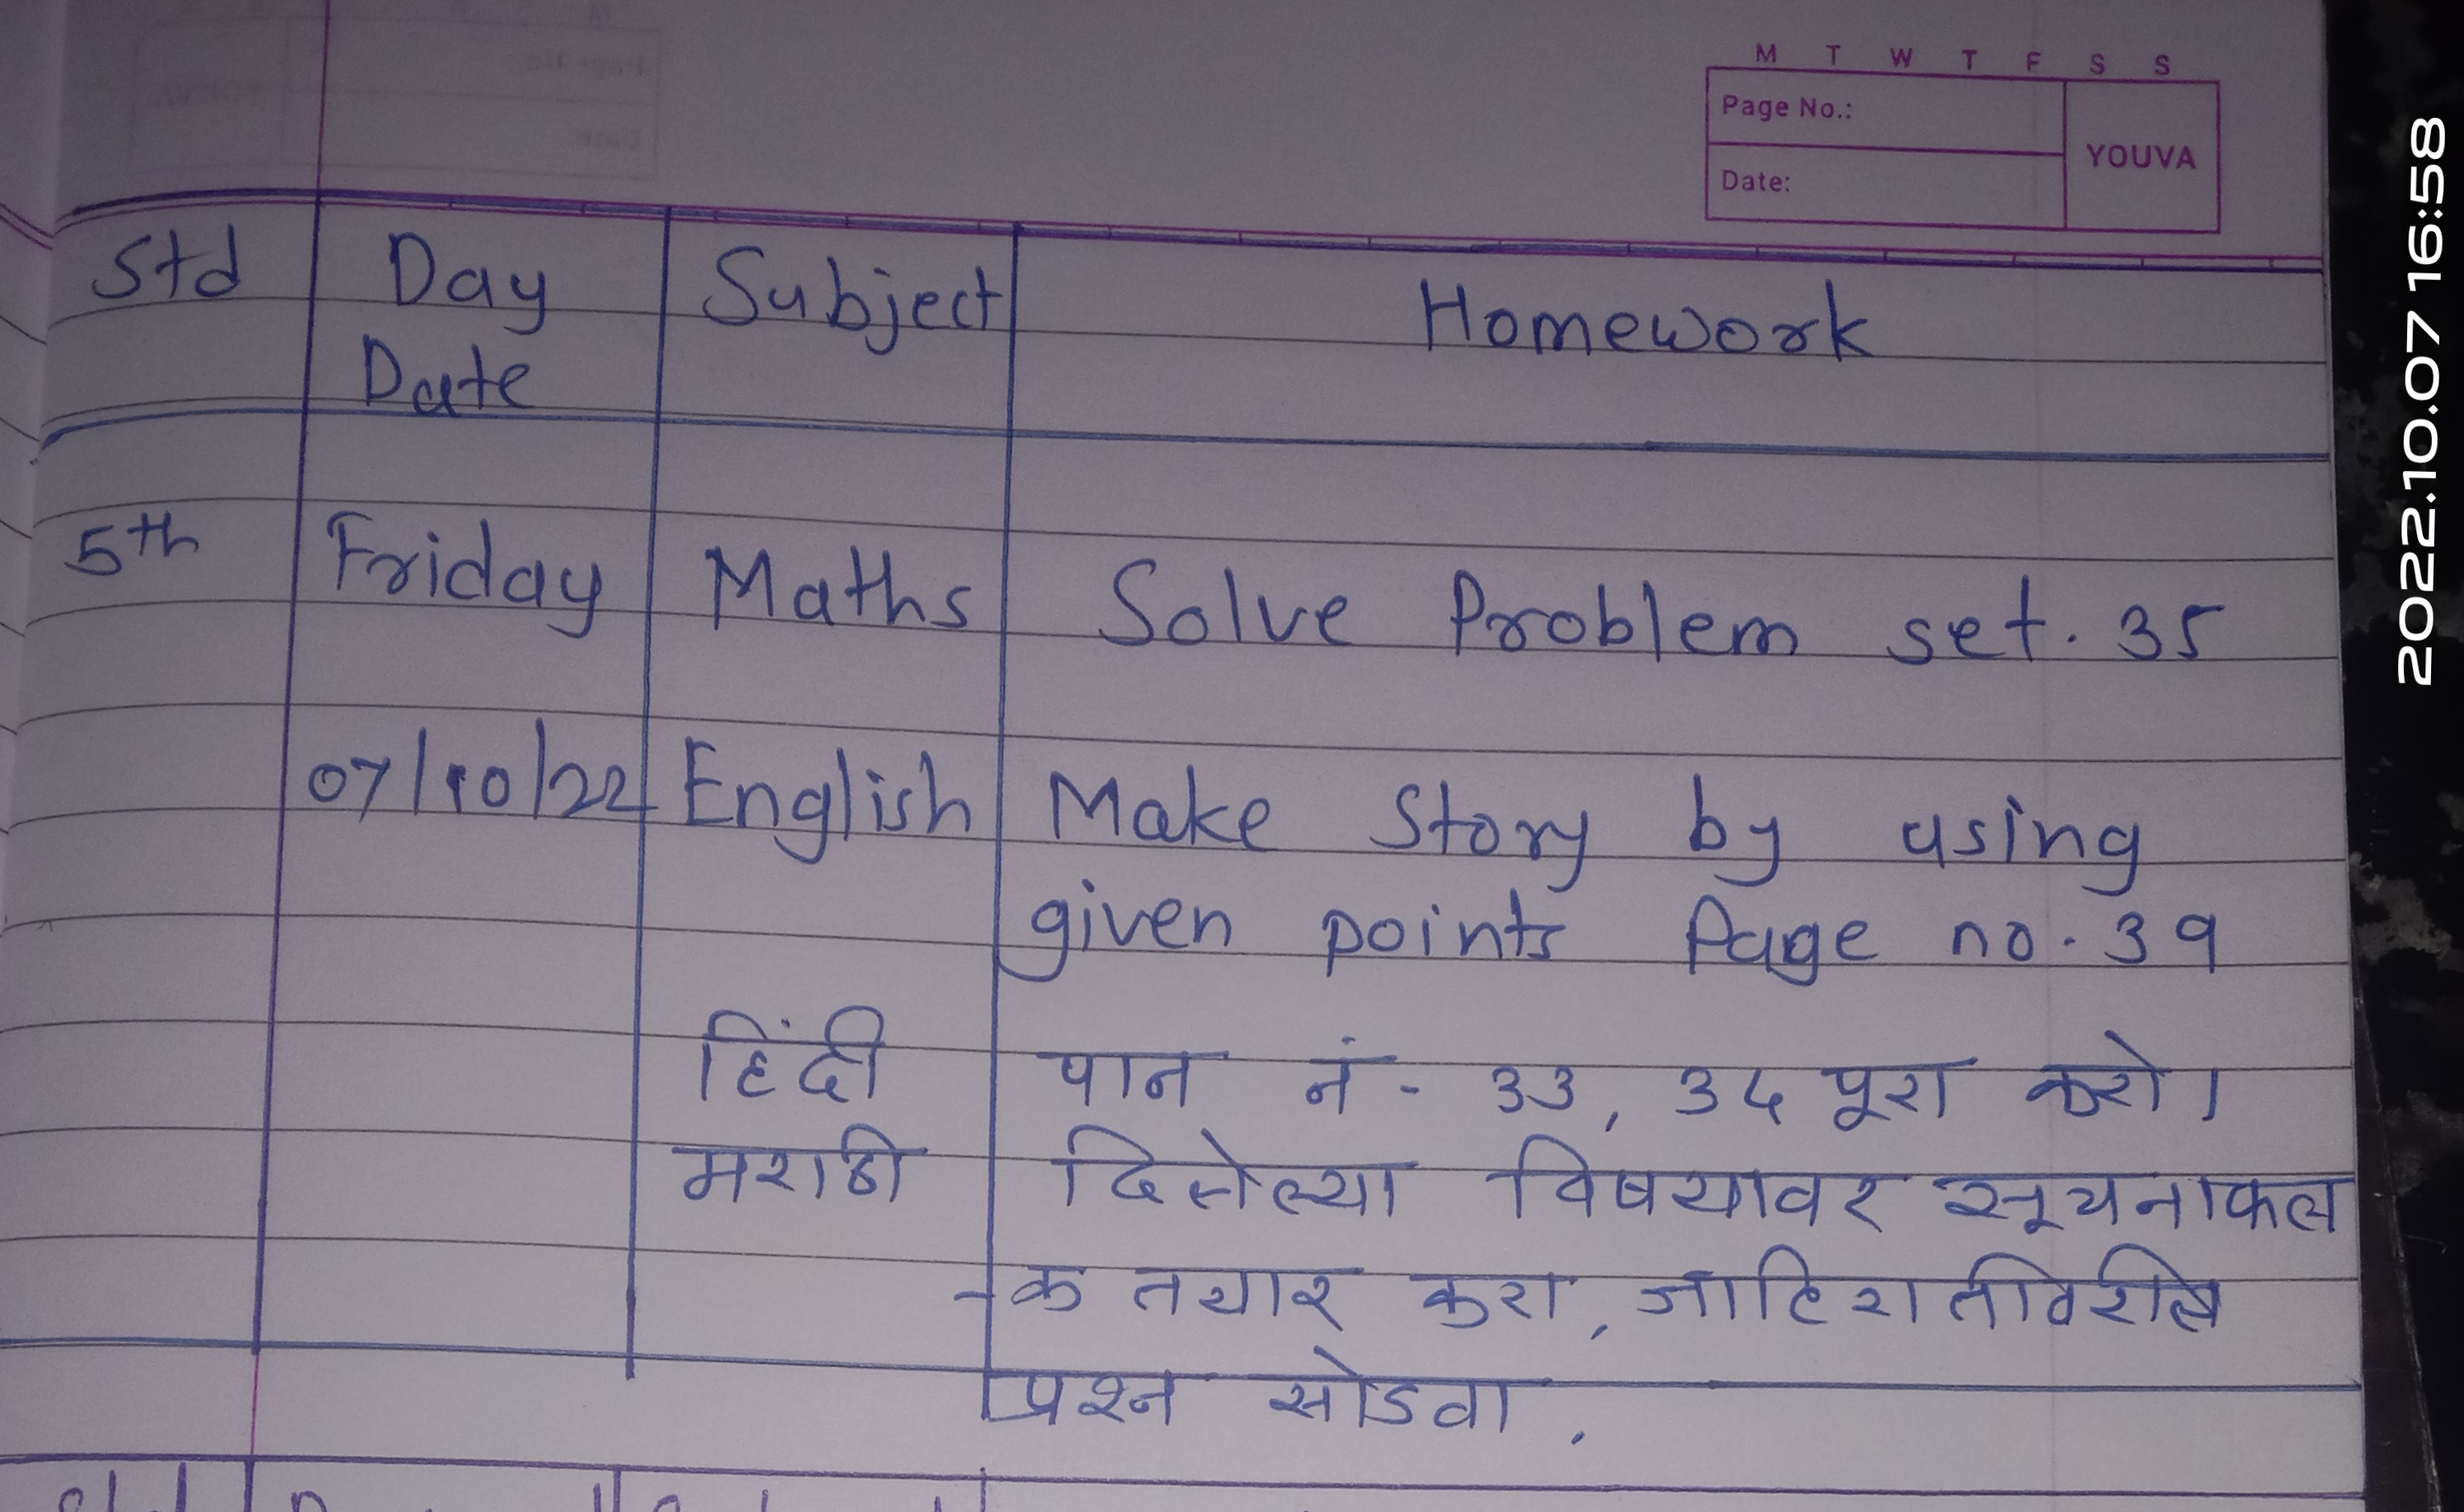 M T W T F S S
Page No.:
YOUVA
Date:
Std Day Subject Homework
Date
5th Friday Maths Solve Problem set. 35
07/10/22 English Make Story by using
given points Page no. 39
हिंदी पान नं - 33, 34 पूरा करो।
मराठी दिलेल्या विषयावर सूचनाफल
-क तयार करा, जाहिरातीवरील
प्रश्न सोडवा.
2022.10.07 16:58